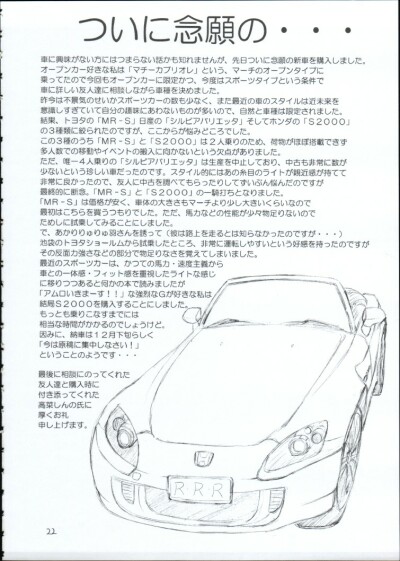 ついに念願の・・・
車に興味がない方にはつまらない話かも知れませんが、先日ついに念願の新車を購入しました。
オープンカー好きな私は「マチーカブリオレ」という、マーチのオープンタイプに
乗ってたので今回もオープンカーに限定かつ、今度はスポーツタイプという条件で
車に詳しい友人達に相談しながら車種を決めました。
昨今は不景気のせいかスポーツカーの数も少なく、また最近の車のスタイルは近未来を
意識しすぎていて自分の趣味にあわないものが多いので、自然と車種は限定されました。
結果、トヨタの「MR-S」日産の「シルビアバリエッタ」そしてホンダの「S2000」
の3種類に絞られたのですが、ここからが悩みどころでした。
この3種のうち「MR-S」と「S2000」は2人乗りのため、荷物がほぼ搭載できず
多人数での移動やイベントの搬入に向かないという欠点がありました。
ただ、唯一4人乗りの「シルビアバリエッタ」は生産を中止しており、中古も非常に数が
少ないという珍しい車だったのです。スタイル的にはあの糸目のライトが親近感が持てて
非常に良かったので、友人に中古を調べてもらったりしてずいぶん悩んだのですが
最終的に断念。「MR-S」と「S2000」の一騎打ちとなりました。
「MR-S」は価格が安く、車体の大きさもマーチより少し大きいくらいなので
最初はこちらを買うつもりでした。ただ、馬力などの性能が少々物足りないので
ためしに試乗してみることにしました。
で、あかりりゅりゅ羽さんを誘って（彼は路上を走るとは知らなかったのですが・・・）
池袋のトヨタショールムから試乗したところ、非常に運転しやすいという好感を持ったのですが
その反面力強さなどの部分で物足りなさを覚えてしまいました。
最近のスポーツカーは、かつての馬力・速度主義から
車との一体感・フィット感を重視したライトな感じ
に移りつつあると何かの本で読みましたが
「アムロいきまーす！！」な強烈なGが好きな私は
結局S2000を購入することにしました。
もっとも乗りこなすまでには
相当な時間がかかるのでしょうけど。
因みに、納車は12月下旬らしく
「今は原稿に集中しなさい！」
ということのようです・・・
最後に相談にのってくれた
友人達と購入時に
付き添ってくれた
高菜しんの氏に
厚くお礼
申し上げます。
RRR
22